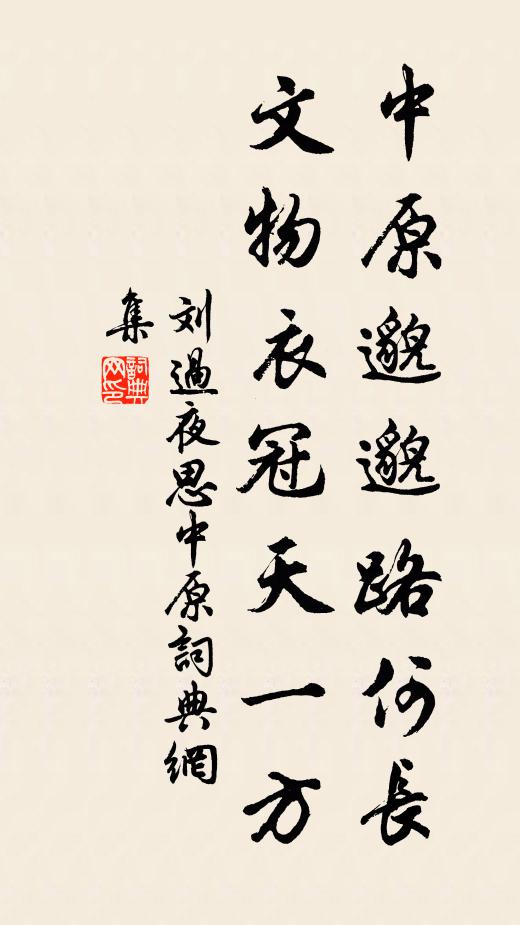 中原邈邈路何長
文物衣冠天一方
刘過夜思中原詞典網
集
詞典網印